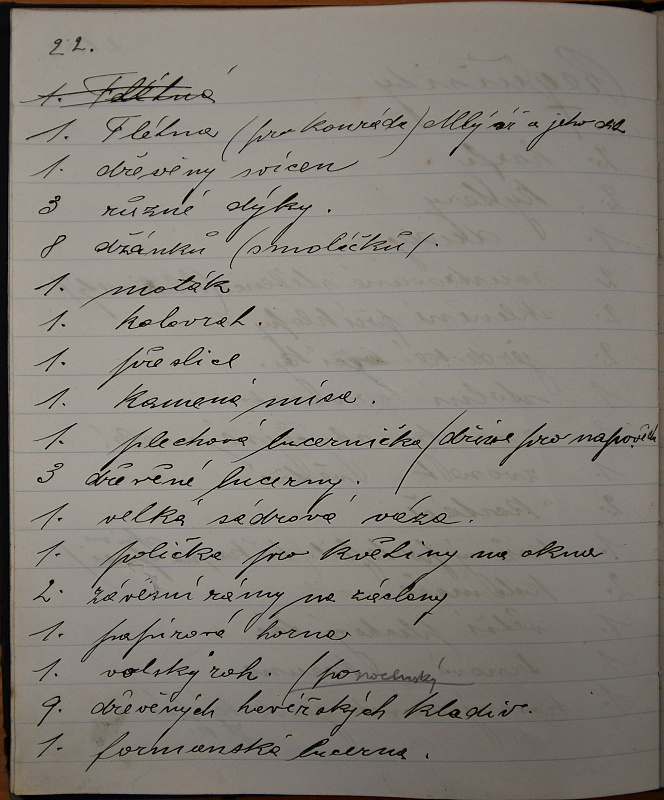 22.
1. Flétna
1. Flétna (pro konráda) Mlýnář a jeho dít
1. dřevěny svicen
3 různé dýky.
8 džbánků (smoláčků).
1. moták
1. kolovrat.
1. přeslice
1. Kamená mísa.
1. plechová lucernička (dříve pro nápověd
3 dřevěné lucerny.
1. velká sádrová váza.
1. polička pro květiny na okna
2. závěsní rámy na záclony
1. papírová horna
1. volský roh. (ponocenský
9. dřevěných havířských kladiv.
1. formanská lucerna.